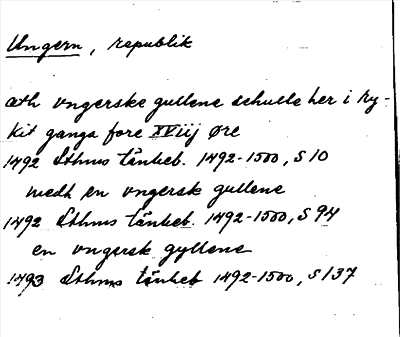 Ungern, republik
ath vngerske gullene schulle her i ry-
kit ganga fore XViij øre
1492 Sthms tänkeb. 1492-1500, S 10
medh en vngersk gullene
1492 Sthms tänkeb. 1492-1500, S 94
en vngersk gyllene
1493 Sthms tänkeb 1492-1500, S 137